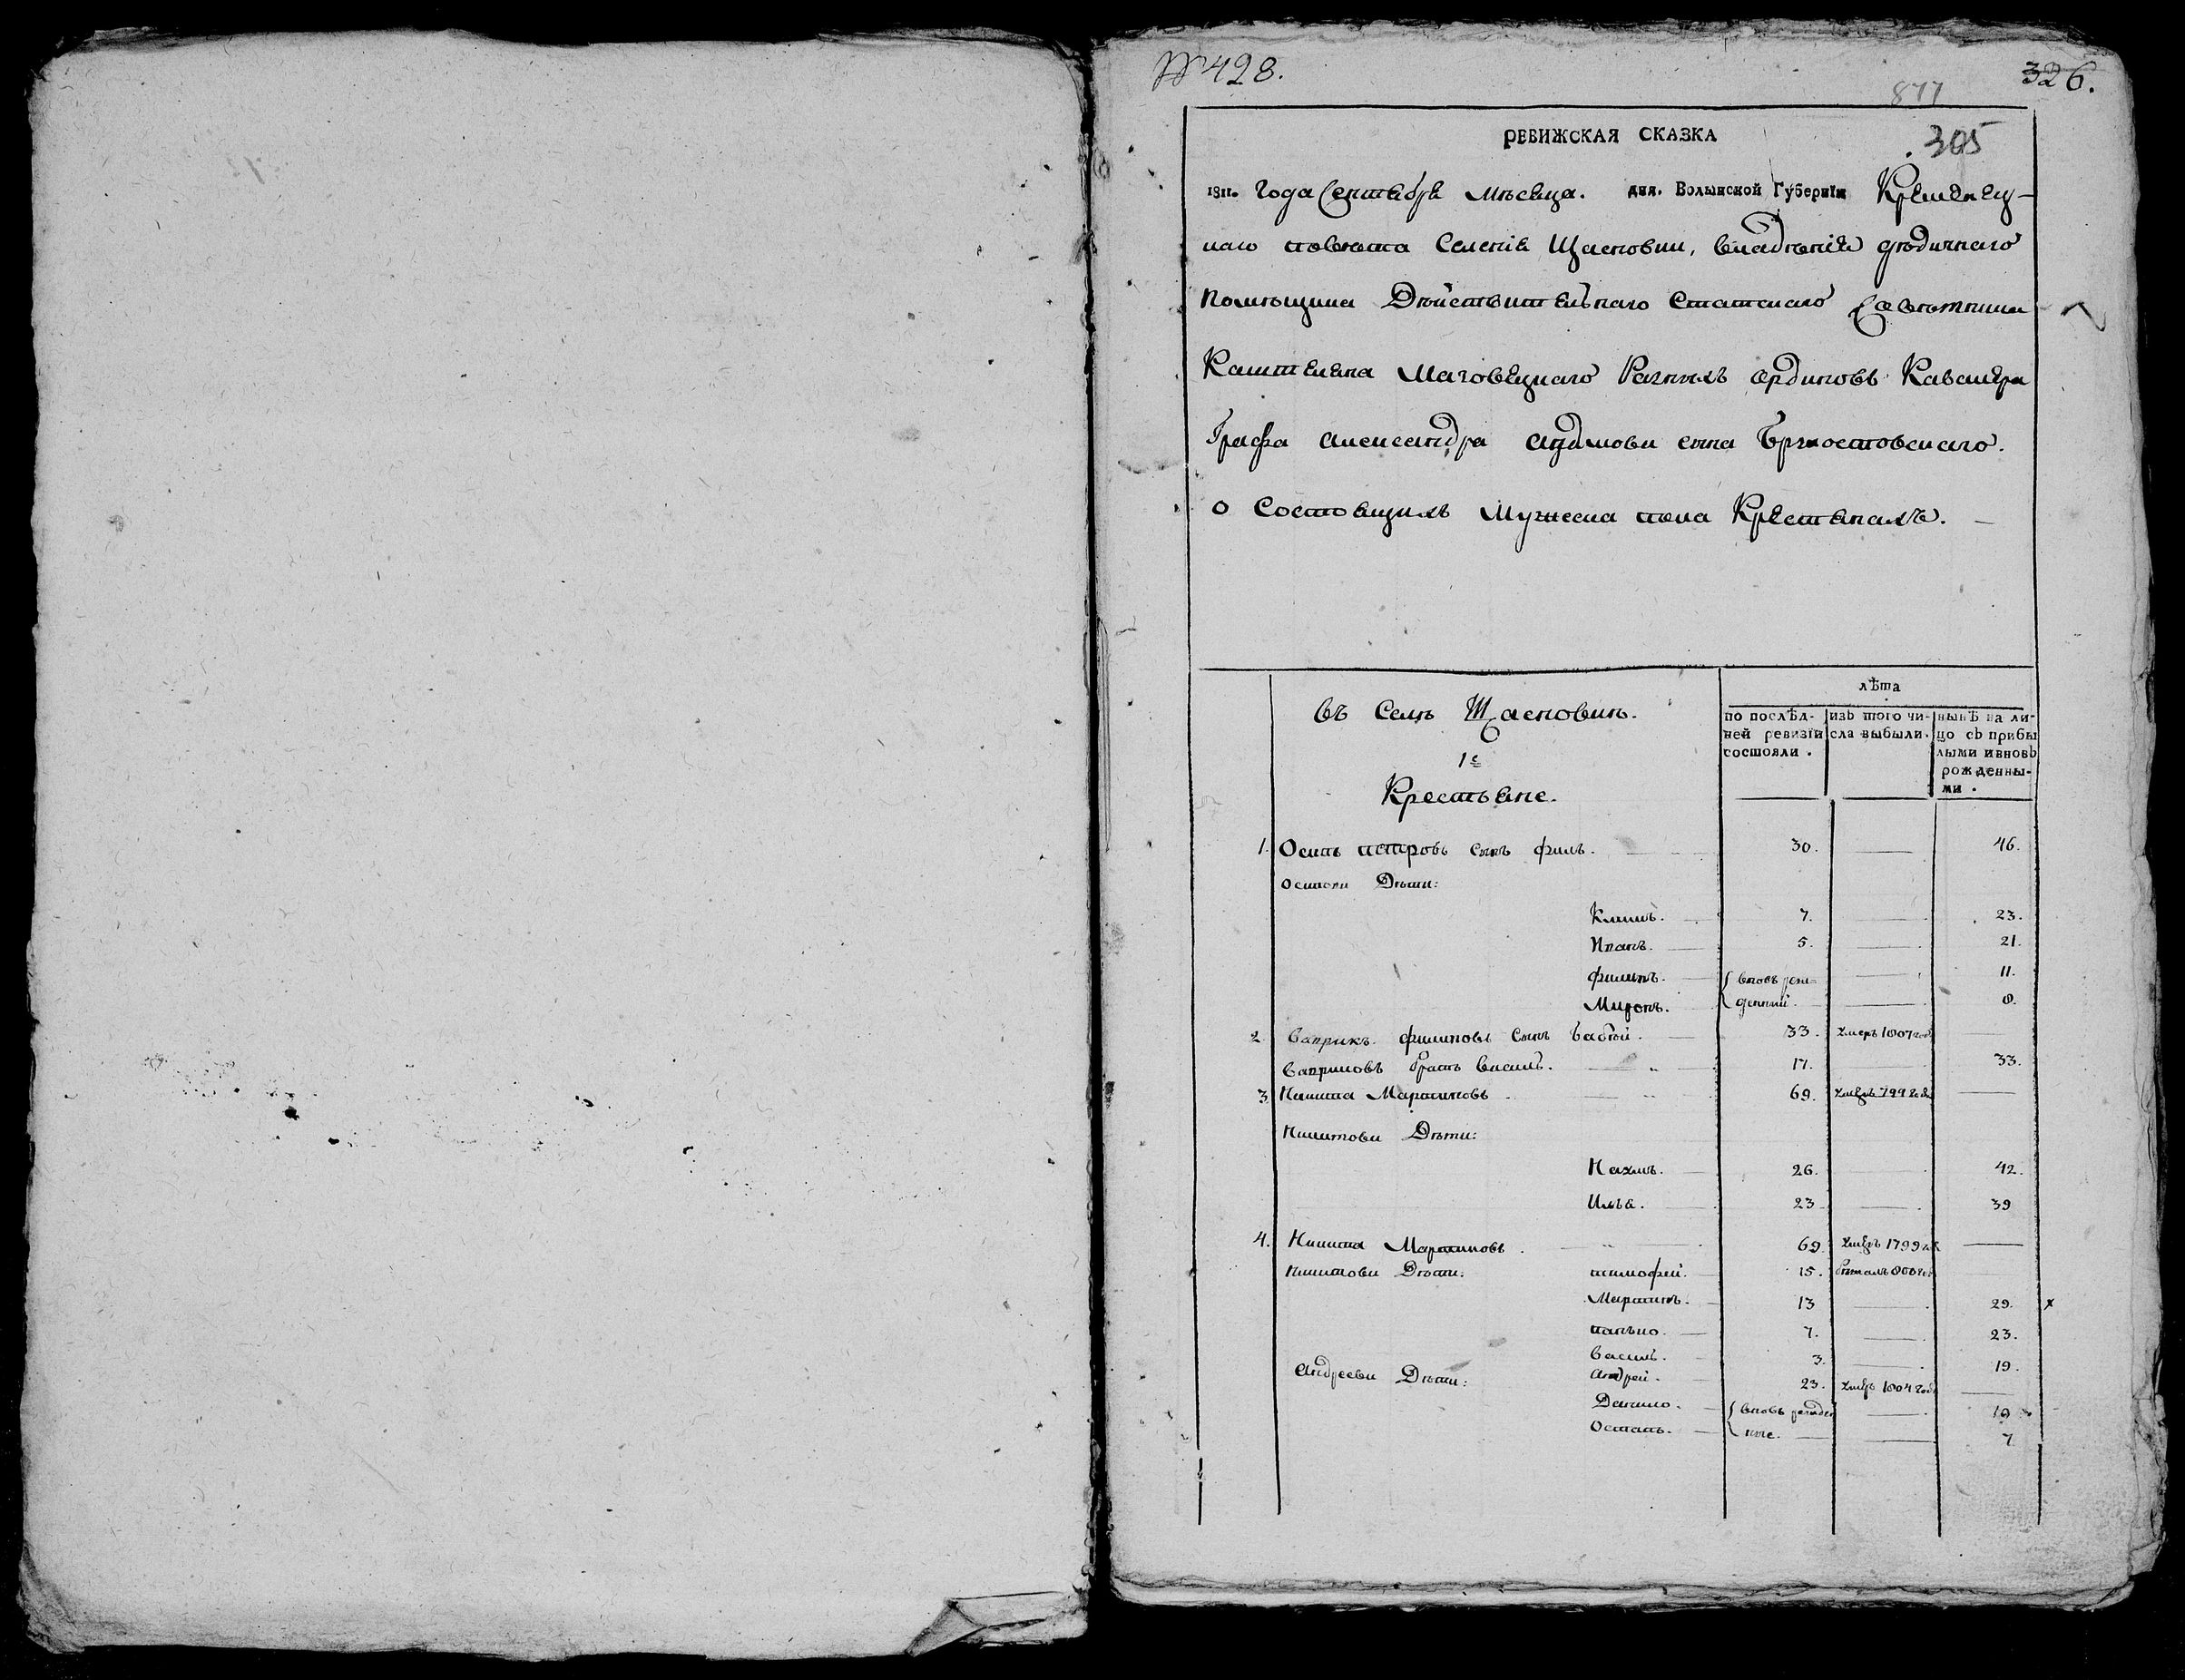 № 428.
326.
877
305
РЕВИЖСКАЯ СКАЗКА
1811. года Сентября Мѣсяца. дня. Волынской Губерніи Кременец-
каго повѣта Селенія Щасновки, владѣнія дѣдичнаго
Помѣщика Дѣйствительнаго Статскаго Совѣтника
Каштеляна Мазовецкаго Разныхъ ординовъ Кавалера
Графа александра адамова сына Бржостовскаго.
О Состоящихъ Мужеска пола Крестьянахъ.
Въ Селѣ Щасновкѣ.
1е
Крестьяне.
лѣта
по послѣд-ней ревизіи состояли.
изъ того чи-сла выбыли.
нынѣ на ли-цо съ прибы лыми ивновь рожденны-ми.
1. Осипъ петровъ сынъ 30. 46.
Осиповы Дѣти:
Климъ. 7. 23.
Иванъ. 5. 21.
филипъ. вновь рож- 11.
Миронъ. денный. 8.
2 Гаврикъ. филиповъ Сынъ 33. умеръ 1807 года
Гавриковъ братъ Василь. 17. 33.
3. Никита Мартиновъ 69. умеръ 799 года
Никитовы Дѣти:
Нахимъ. 26. 42.
Илья. 23 39
4. Никита Мартиновъ. 69 умеръ 1799 год
Никитовы Дѣти: тимофей. 15.
Мартинъ. 13 29. х
панько. 7. 23.
Василь. 3. 19.
Андрей. 23. умеръ 1804 года
Андреевы Дѣти:
Данило. вновь рожден 10
Остапъ. ные. 7